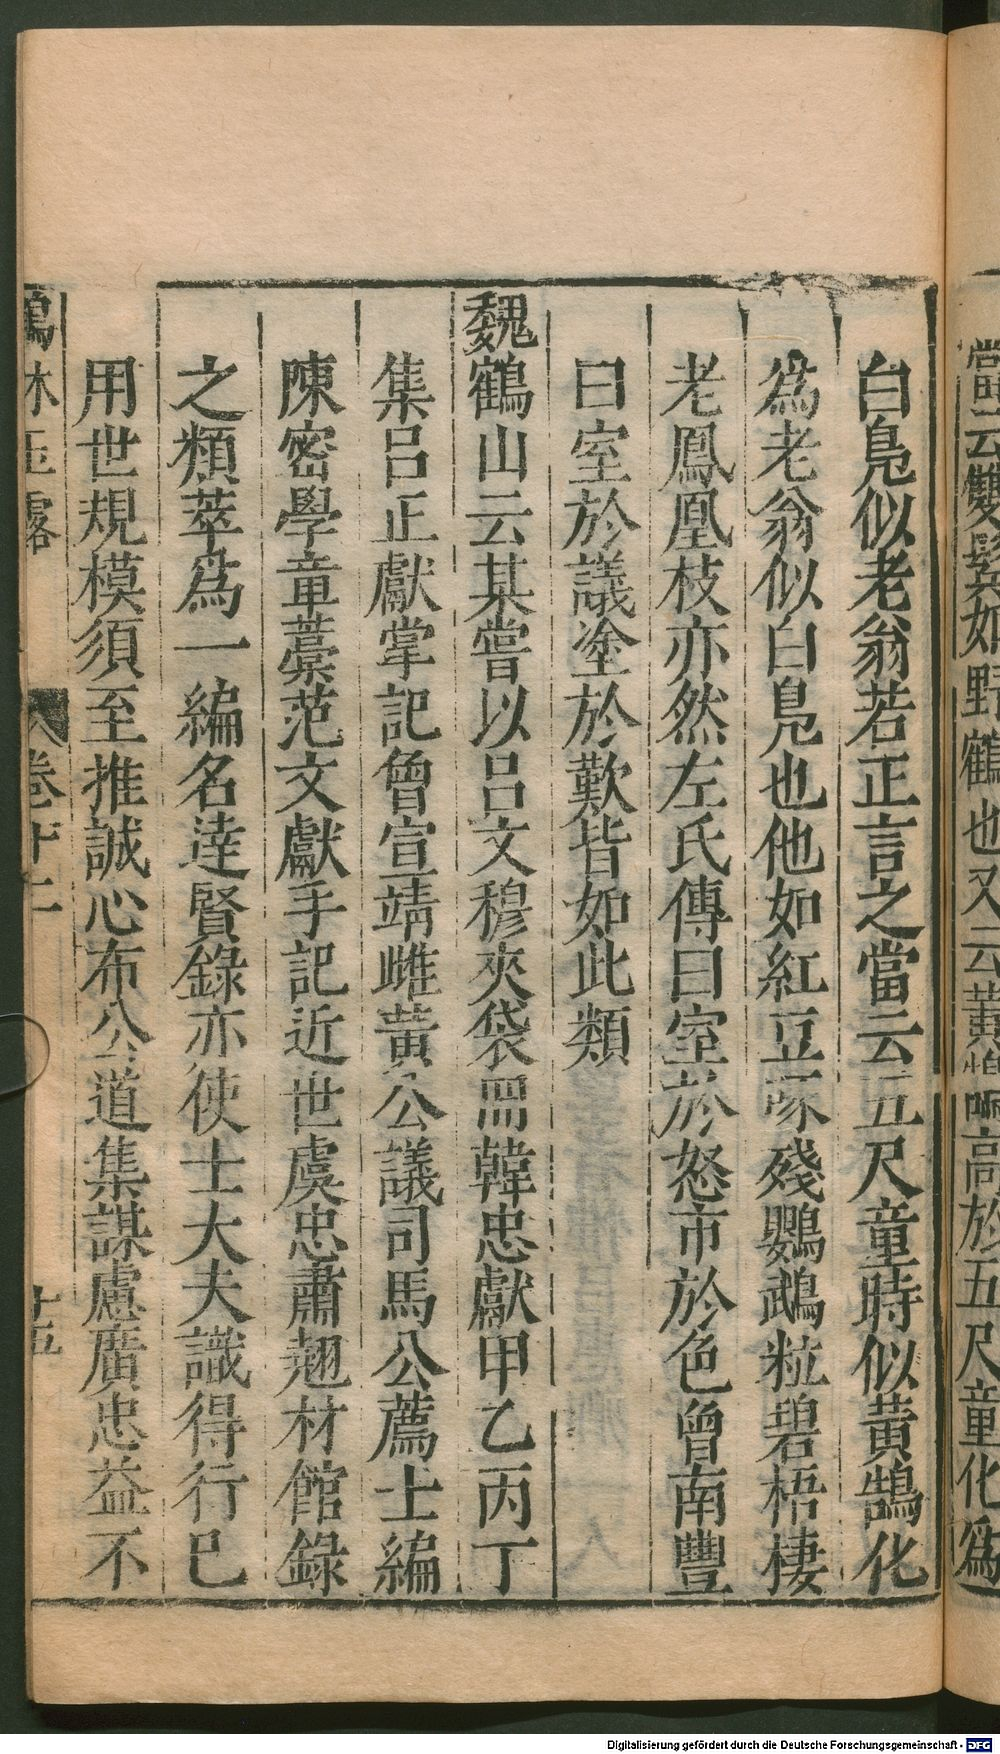 當云雙鬢如野鶴也又云黃
高於五尺童化爲
白鳧似老翁若正言之當云五尺童時似黃鵠化
為老翁似白鳧也他如紅豆啄殘鸚鵡粒碧梧棲
老鳳凰枝亦然左氏傳曰室於怒市於色曾南豐
曰室於議塗於歎皆如此類
魏鶴山云某嘗以呂文穆夾袋冊韓忠獻甲乙丙丁
集呂正獻掌記曾宣靖雌黃公議司馬公薦士編
陳密學章藁范文獻手記近世虞忠肅翹材館錄
之類萃爲一編名達賢錄亦使士大夫識得行巳
用世規模須至推誠心布公道集謀慮廣忠益不
鶴林玉露 卷十二 十五
Digitalisierung gefördert durch die Deutsche Forschungsgemeinschaft - DFG